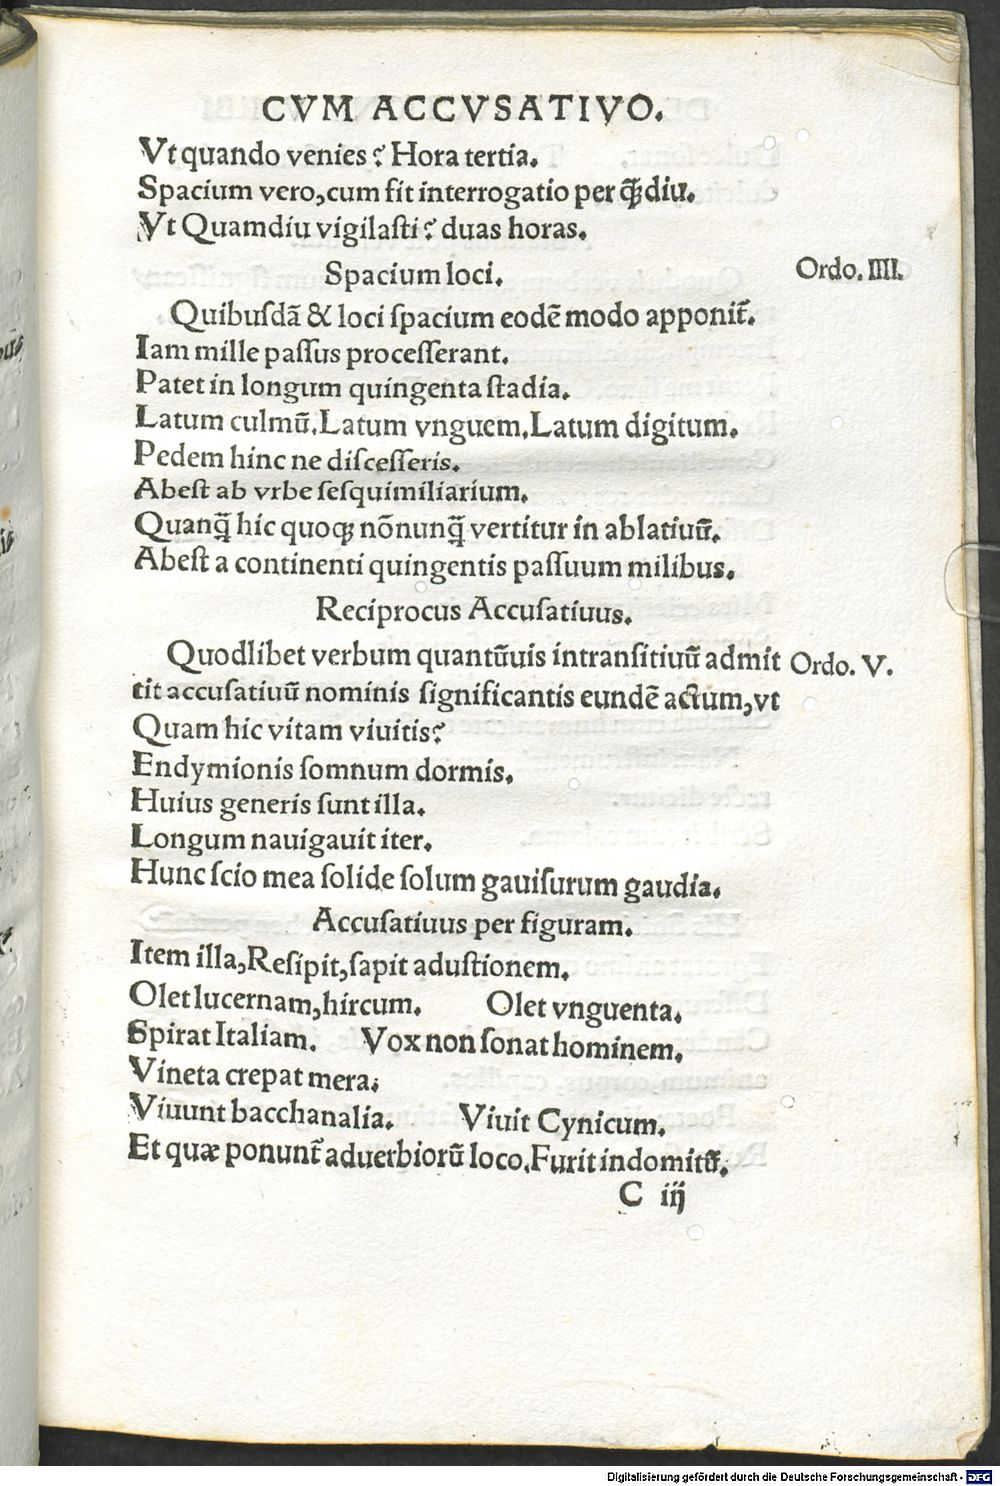 CVM ACCVSATIVO.
Vt quando venies? Hora tertia.
Spacium vero, cum fit interrogatio per q̄ȝdiu.
Vt Quamdiu vigilaſti? duas horas.
Spacium loci.
Ordo. IIII.
Quibuſdā & loci ſpacium eodē modo apponit̄.
Iam mille paſſus proceſſerant.
Patet in longum quingenta ſtadia.
Latum culmū. Latum vnguem. Latum digitum.
Pedem hinc ne diſceſſeris.
Abeſt ab vrbe ſeſquimiliarium.
Quanq̄ hic quoqȝ nōnunq̄ vertitur in ablatiuū.
Abeſt a continenti quingentis paſſuum milibus.
Reciprocus Accuſatiuus.
Quodlibet verbum quantūuis intranſitiuū admit
Ordo. V.
tit accuſatiuū nominis ſignificantis eundē actum, vt
Quam hic vitam viuitis?
Endymionis ſomnum dormis.
Huius generis ſunt illa.
Longum nauigauit iter.
Hunc ſcio mea ſolide ſolum gauiſurum gaudia.
Accuſatiuus per figuram.
Item illa, Reſipit, ſapit aduſtionem.
Olet lucernam, hircum. Olet vnguenta.
Spirat Italiam. Vox non ſonat hominem.
Vineta crepat mera;
Viuunt bacchanalia. Viuit Cynicum.
Et quæ ponunt̄ aduerbiorū loco. Furit indomitū.
C iij
Digitalisierung gefördert durch die Deutsche Forschungsgemeinschaft - DFG